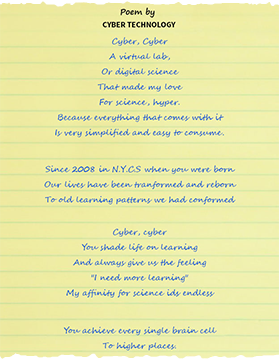 Poem by
CYBER TECHNOLOGY
Cyber, Cyber
A virtual lab,
Or digital science
That made my love
For science, hyper.
Because everything that comes with it
Is very simplified and easy to consume.
Since 2008 in N.Y.C.S when you were born
Our lives have been tranformed and reborn
To old learning patterns we had conformed
Cyber, cyber
You shade life on learning
And always give us the feeling
"I need more learning"
My affinity for science ids endless
You achieve every single brain cell
To higher places.